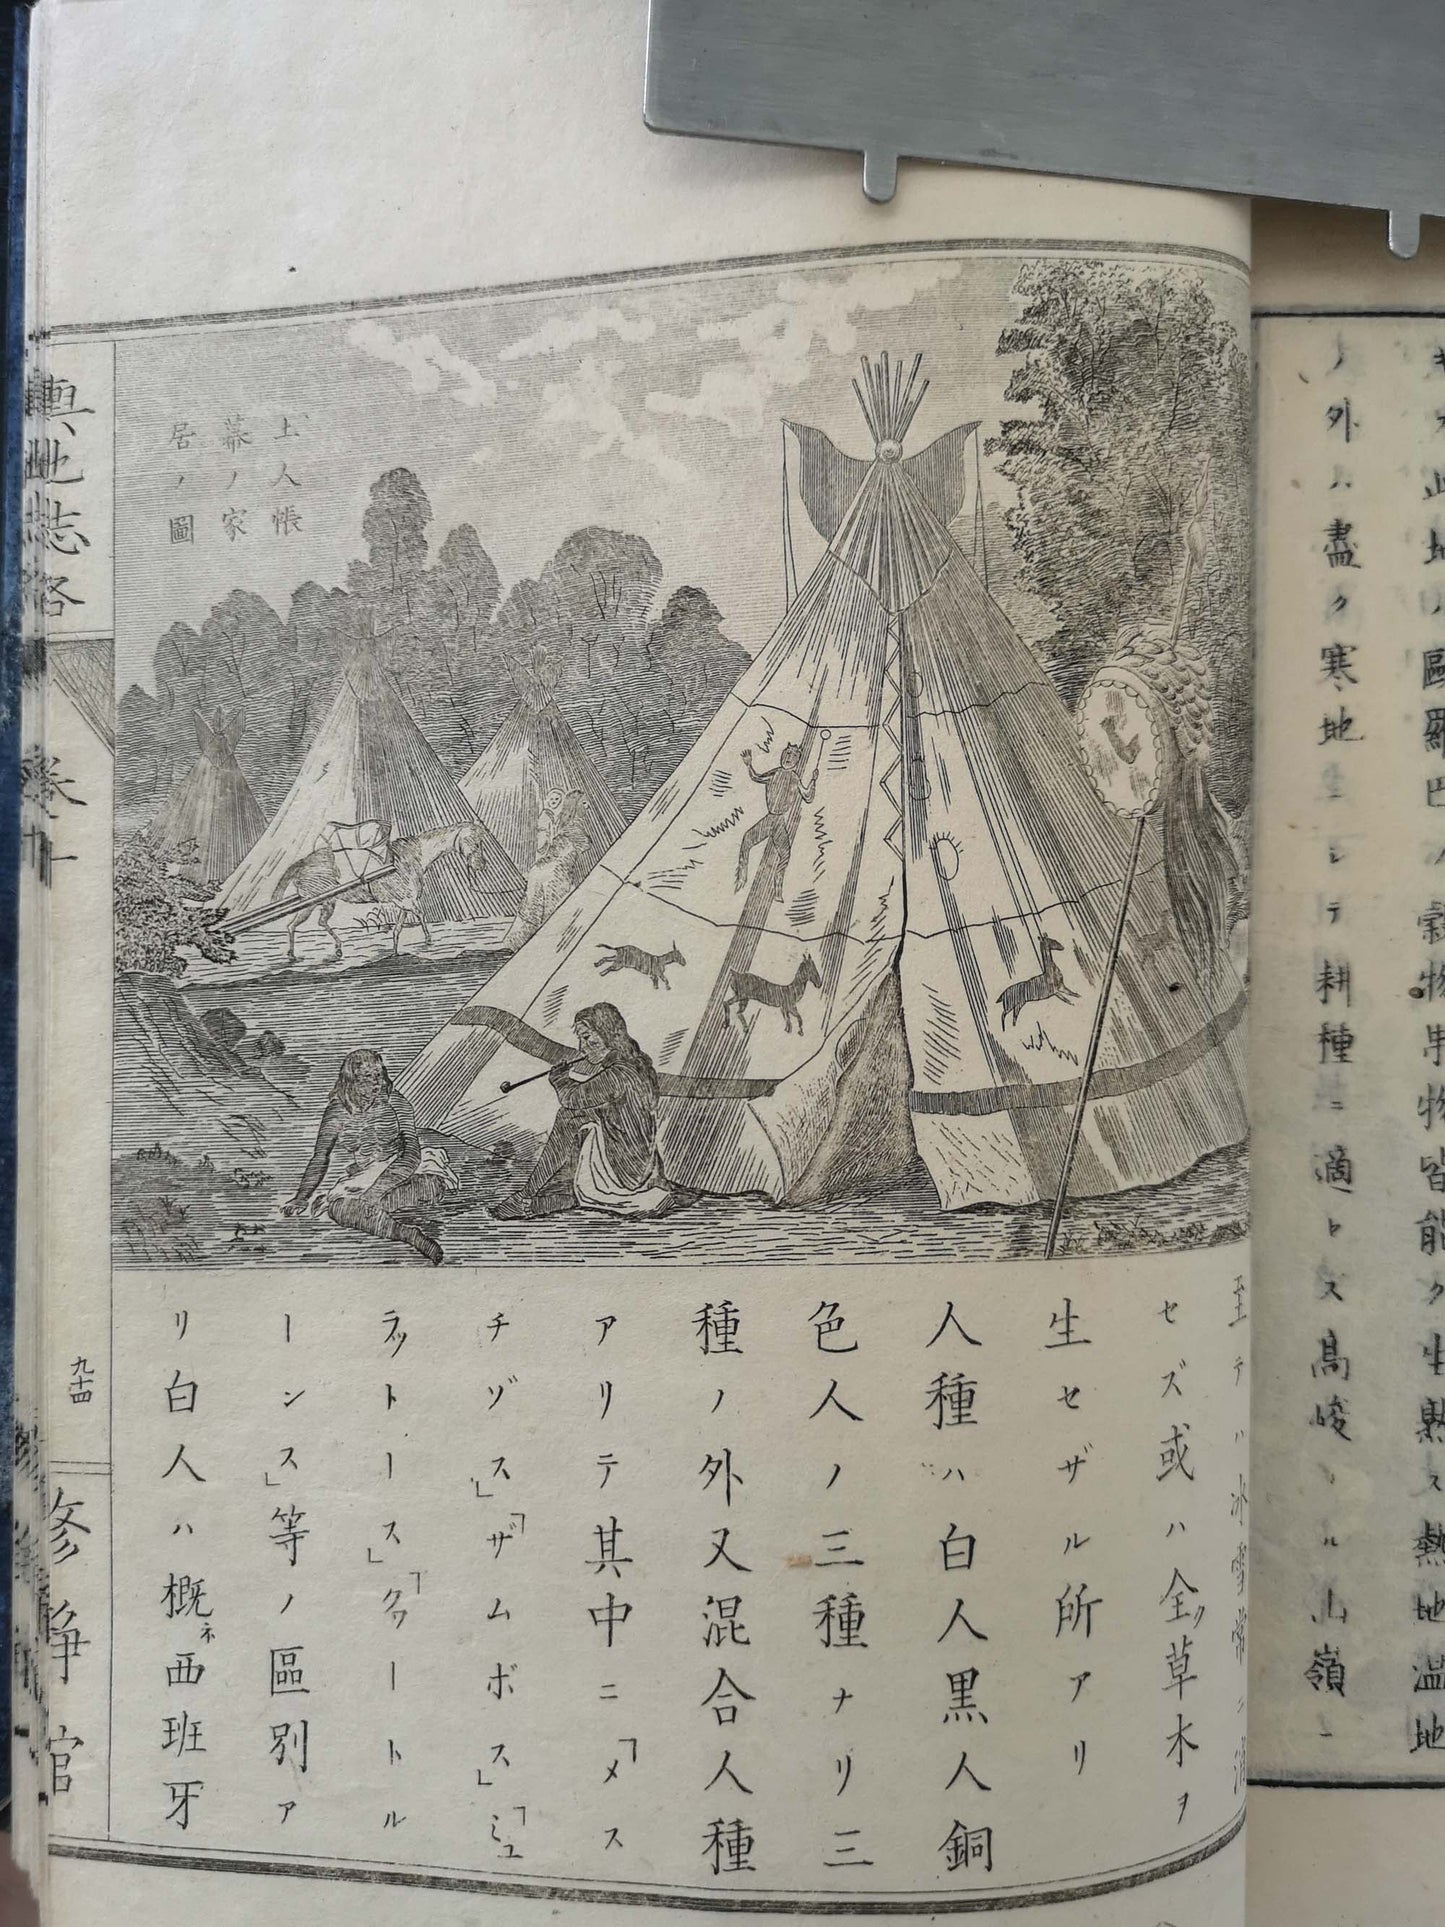 此地ハ歐羅巴ノ穀物果物皆能ク生熟ス熱地温地
ノ外ハ盡ク寒地ニシテ耕種ニ適トス高峻ナル山嶺ニ
至テハ氷雪常ニ消
セズ或ハ全ク草木ヲ
生セザル所アリ
人種ハ白人黒人銅
色人ノ三種ナリ三
種ノ外又混合人種
アリテ其中ニ「メス
チゾス」「ザムボス」「ミュ
ラットース」「クワートル
ーンス」等ノ區別ア
リ白人ハ概ネ西班牙
土人帳
幕ノ家
居ノ圖
輿地志略
巻十
九十四
修静館